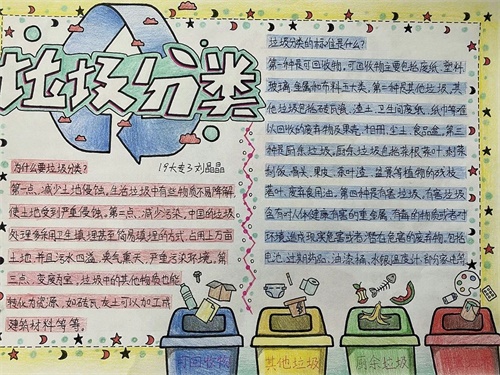 垃圾分类
为什么要垃圾分类?
19大专3刘晶晶
第一点、减少土地侵蚀。生活垃圾中有些物质不易降解,
使土地受到严重侵蚀。第二点、减少污染。中国的垃圾
处理多采用卫生填埋甚至简易填埋的方式,占用上万亩
土地,并且污水四溢,臭气熏天,严重污染环境。第
三点、变废为宝。垃圾中的其他物质也能
转化为资源,如砖瓦灰土可以加工成
建筑材料等等。
垃圾分类的标准是什么?
第一种是可回收物。可回收物主要包括废纸、塑料、
玻璃、金属和布料五大类。第二种是其他垃圾。其
他垃圾包括砖瓦瓷、渣土、卫生间废纸、纸巾等难
以回收的废弃物及果壳、相册、尘土、食品盒。第三
种是厨余垃圾。厨余垃圾包括菜根菜叶、剩菜
剩饭、骨头、果皮、茶叶渣、盆景等植物的残枝
菜叶、废弃食用油。第四种是有害垃圾。有害垃圾
含有对人体健康有害的重金属、有毒的物质或者对
环境造成现实危害或者潜在危害的废弃物。包括
电池、过期药品、油漆桶、水银温度计、
可回收物
其他垃圾
厨余垃圾